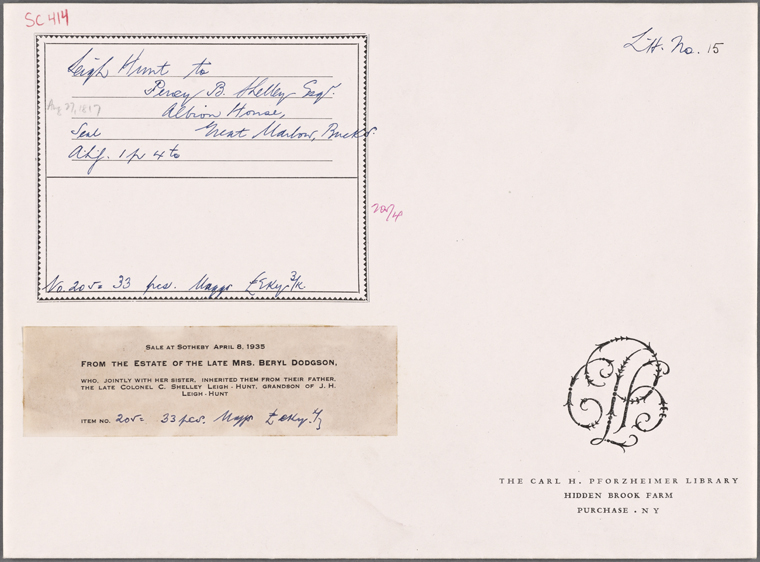 SC 414
L.H. No. 15
Leigh Hunt to
Percy B. Shelley Esqr.
Aug 27, 1817
Albion House,
Seal Great Marlow, Bucks.
1 p 4to
205/4
No. 205= 33 pcs. Maggs £Eky 3/K
SALE AT SOTHEBY APRIL 8, 1935
FROM THE ESTATE OF THE LATE MRS. BERYL DODGSON,
WHO, JOINTLY WITH HER SISTER, INHERITED THEM FROM THEIR FATHER,
THE LATE COLONEL C. SHELLEY LEIGH-HUNT, GRANDSON OF J. H.
LEIGH-HUNT
ITEM NO. 205= 33 pcs. Maggs
THE CARL H. PFORZHEIMER LIBRARY
HIDDEN BROOK FARM
PURCHASE . NY